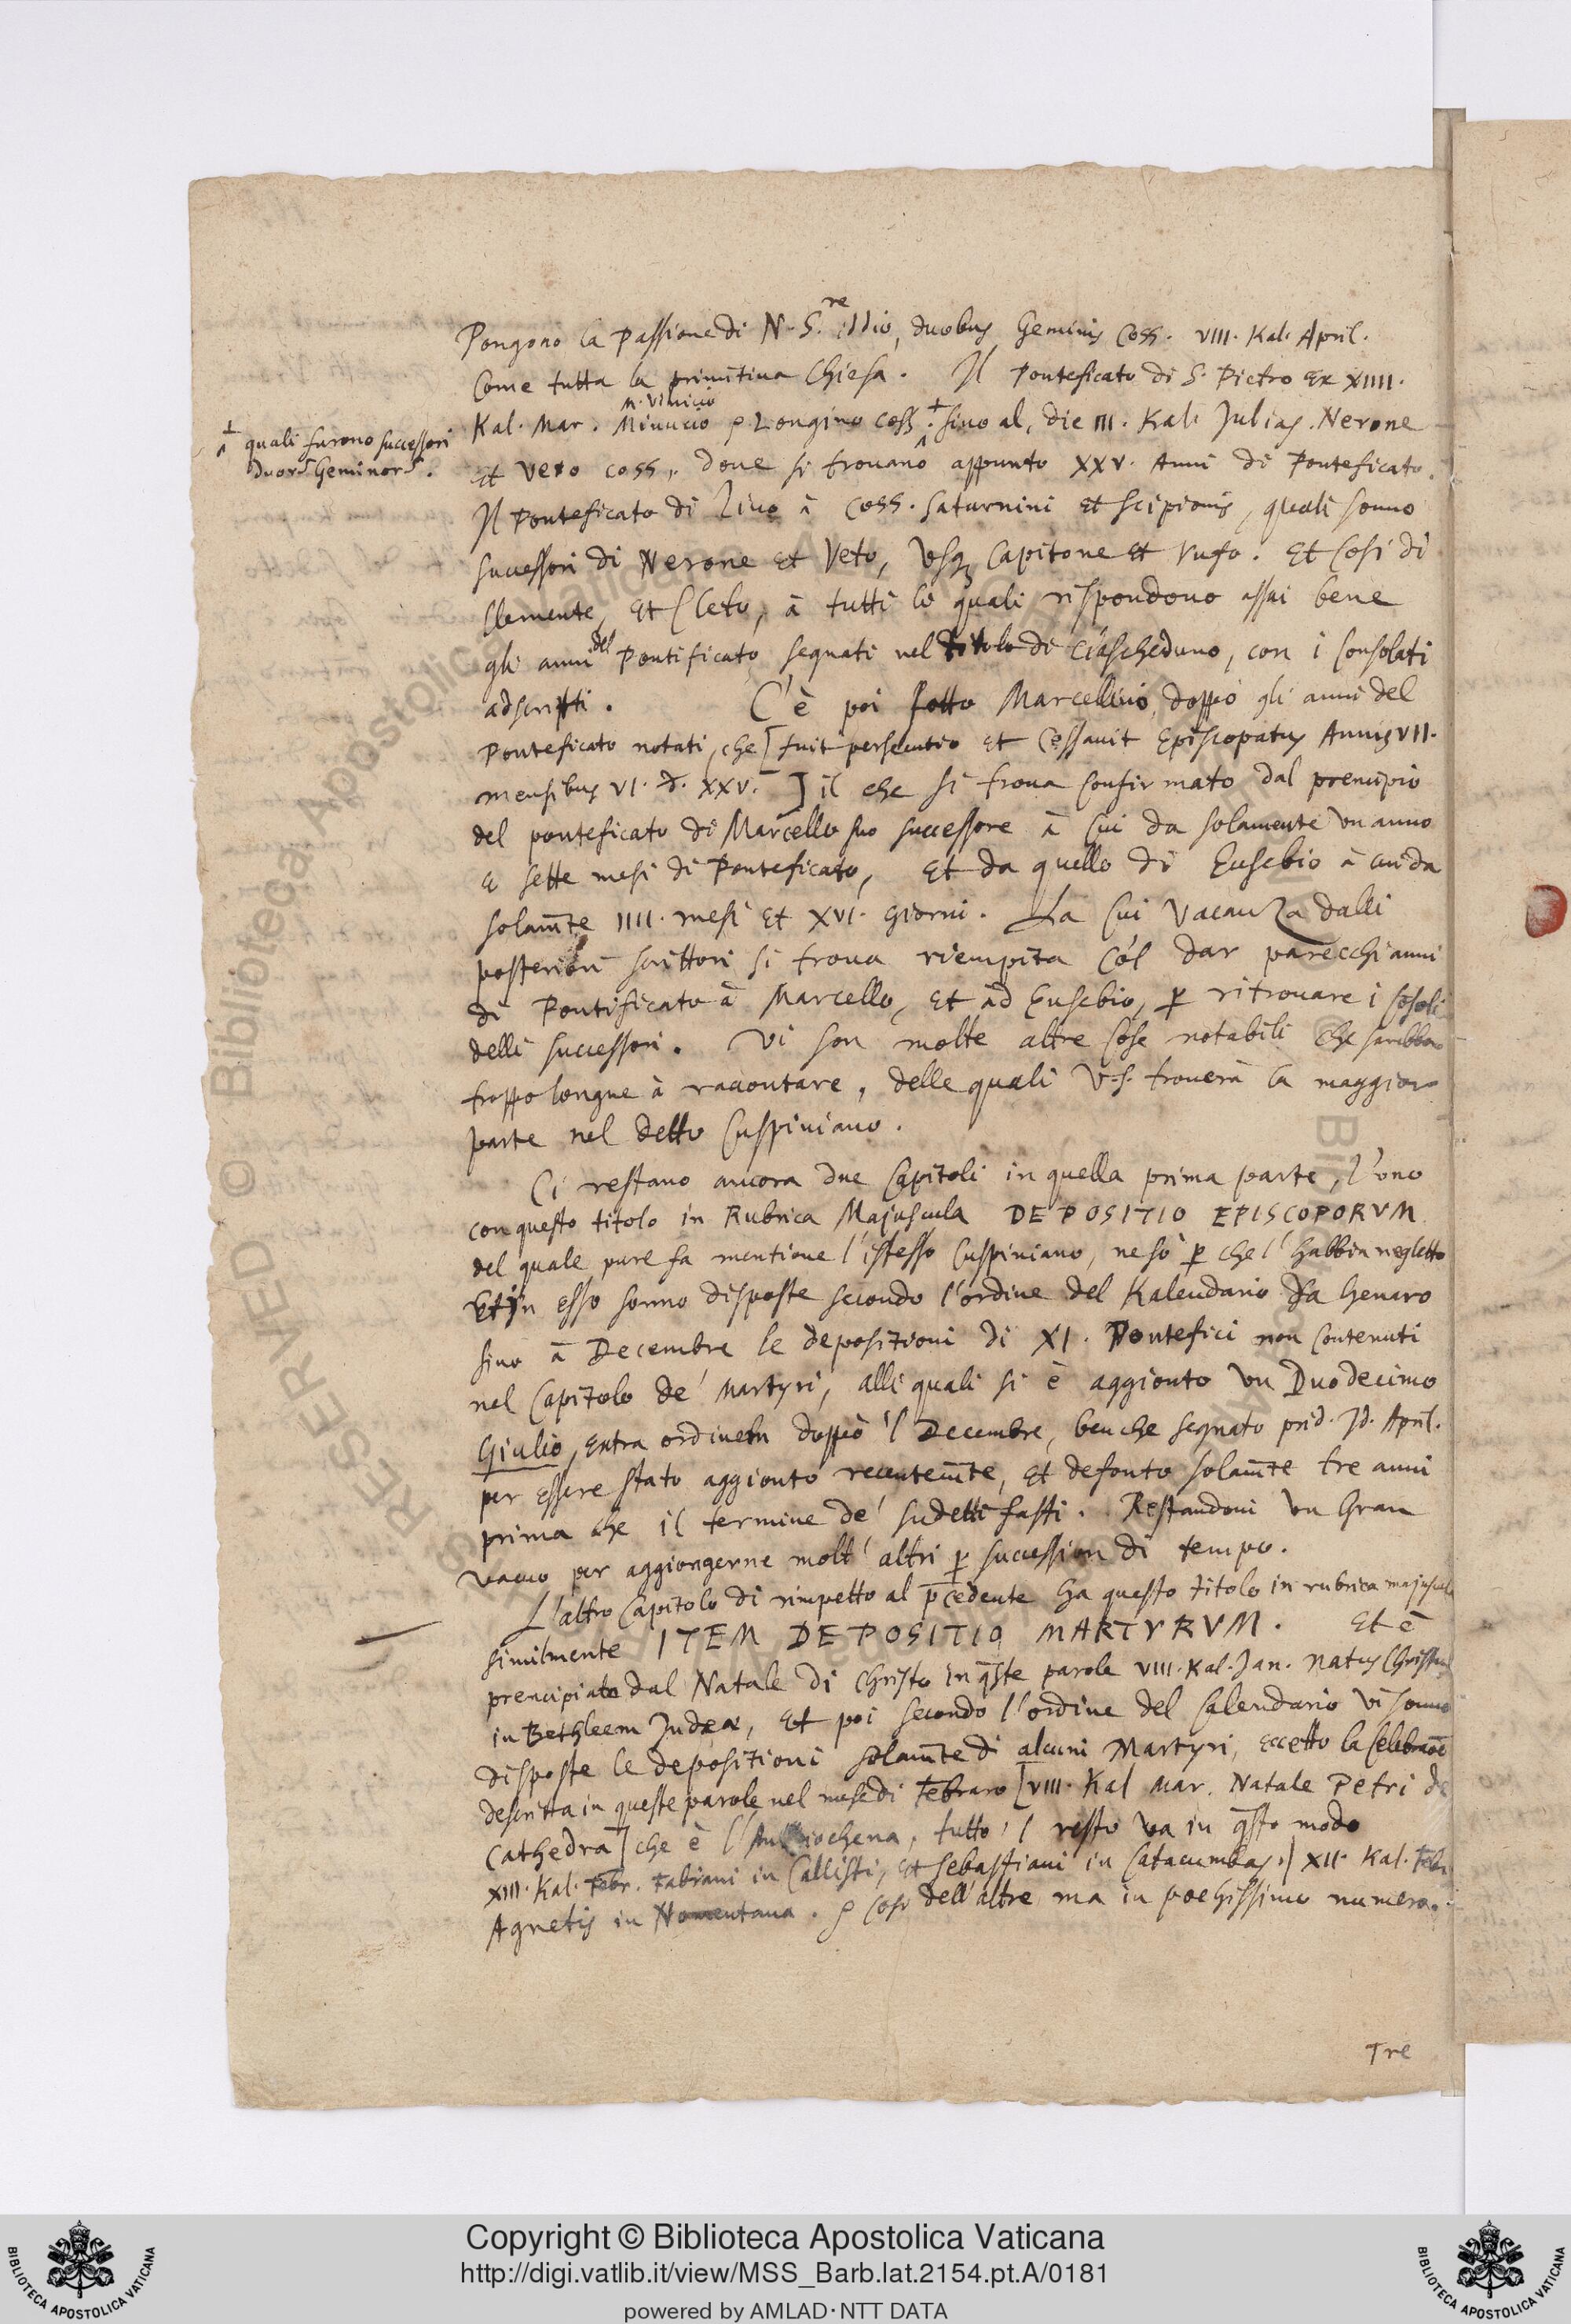 Pongono la Passione di N. S.re iddio, duobus Geminis Coss. VIII. Kal. April.
Come tutta la primitiua Chiesa. Il Ponteficato di S. Pietro Ex XIIII.
M. Vinicio
Kal. Mar. Minucio e Longino Coss. + sino al, die III. Kal. Julias. Nerone
+ quali furono successori
duor. Geminor.
et Veto coss., doue si trouano appunto XXV. Anni di Ponteficato.
Il Ponteficato di Lino à Coss. Saturnini et Scipionis, quali sonno
successori di Nerone et Veto, usq3 Capitone et Rufo. Et cosi di
Clemente, et Cleto, à tutti li quali rispondono assai bene
gli anni del Pontificato segnati nel titolo di ciascheduno, con i Consolati
adscritti. C'è poi sotto Marcellino, doppo gli anni del
Ponteficato notati, che [fuit persecutio et cessauit Episcopatus Annis VII.
mensibus VI. d. XXV.] il che si troua confirmato dal prencipio
del ponteficato di Marcello suo successore à cui da solamente un anno
e sette mesi di Ponteficato, et da quello di Eusebio à cui da
solamte IIII. mesi et XVI. giorni. La cui vacanza dalli
posteriori scrittori si troua riempita có'l dar parecchi anni
di Pontificato à Marcello, et ad Eusebio, p ritrouare i cósoli
delli successori. Vi son molte altre cose notabili che sarebbono
troppo longue à raccontare, delle quali V.S. trouerà la maggior
parte nel detto Cuspiniano.
Ci restano ancora due Capitoli in quella prima parte, l'uno
con questo titolo in Rubrica Majuscula DEPOSITIO EPISCOPORVM
del quale pure fa mentione l'istesso Cuspiniano, ne sò p che l'habbia negletto
Et in esso sonno disposte secondo l'ordine del Kalendario da Genaro
sino à Decembre le depositioni di XI. Pontefici non contenuti
nel Capitolo de' Martyri, alli quali si è aggionto un Duodecimo
Giulio, extra ordinem doppo 'l Decembre, benche segnato prid. Id. April.
per essere stato aggionto recentemte, et defonto solamte tre anni
prima che il termine de' sudetti fasti. Restandoui un Gran
vacuo per aggiongerne molt' altri p succession di tempo.
L'altro Capitolo di rimpetto al pcedente ha questo titolo in rubrica majuscula
similmente ITEM DEPOSITIO MARTYRVM. Et è
prencipiato dal Natale di Christo in qste parole VIII. Kal. Jan. natus Christus
in Bethleem Judeæ, et poi secondo l'ordine del Calendario vi sonno
disposte le depositioni solamte di alcuni Martyri, eccetto la celebraoe
descritta in queste parole nel mese di Febraro [VIII. Kal Mar. Natale Petri de
Cathedra] che è l'Antiochena, tutto 'l resto va in qsto modo
XIII. Kal. Febr. Fabiani in Callisti, et Sebastiani in Catacumbas.] XII. Kal. Febr.
Agnetis in Nomentana. e cosi dell'altre ma in pochissimo numero.
Tre
Copyright © Biblioteca Apostolica Vaticana
http://digi.vatlib.it/view/MSS_Barb.lat.2154.pt.A/0181
powered by AMLAD·NTT DATA
BIBLIOTECA APOSTOLICA VATICANA
BIBLIOTECA APOSTOLICA VATICANA